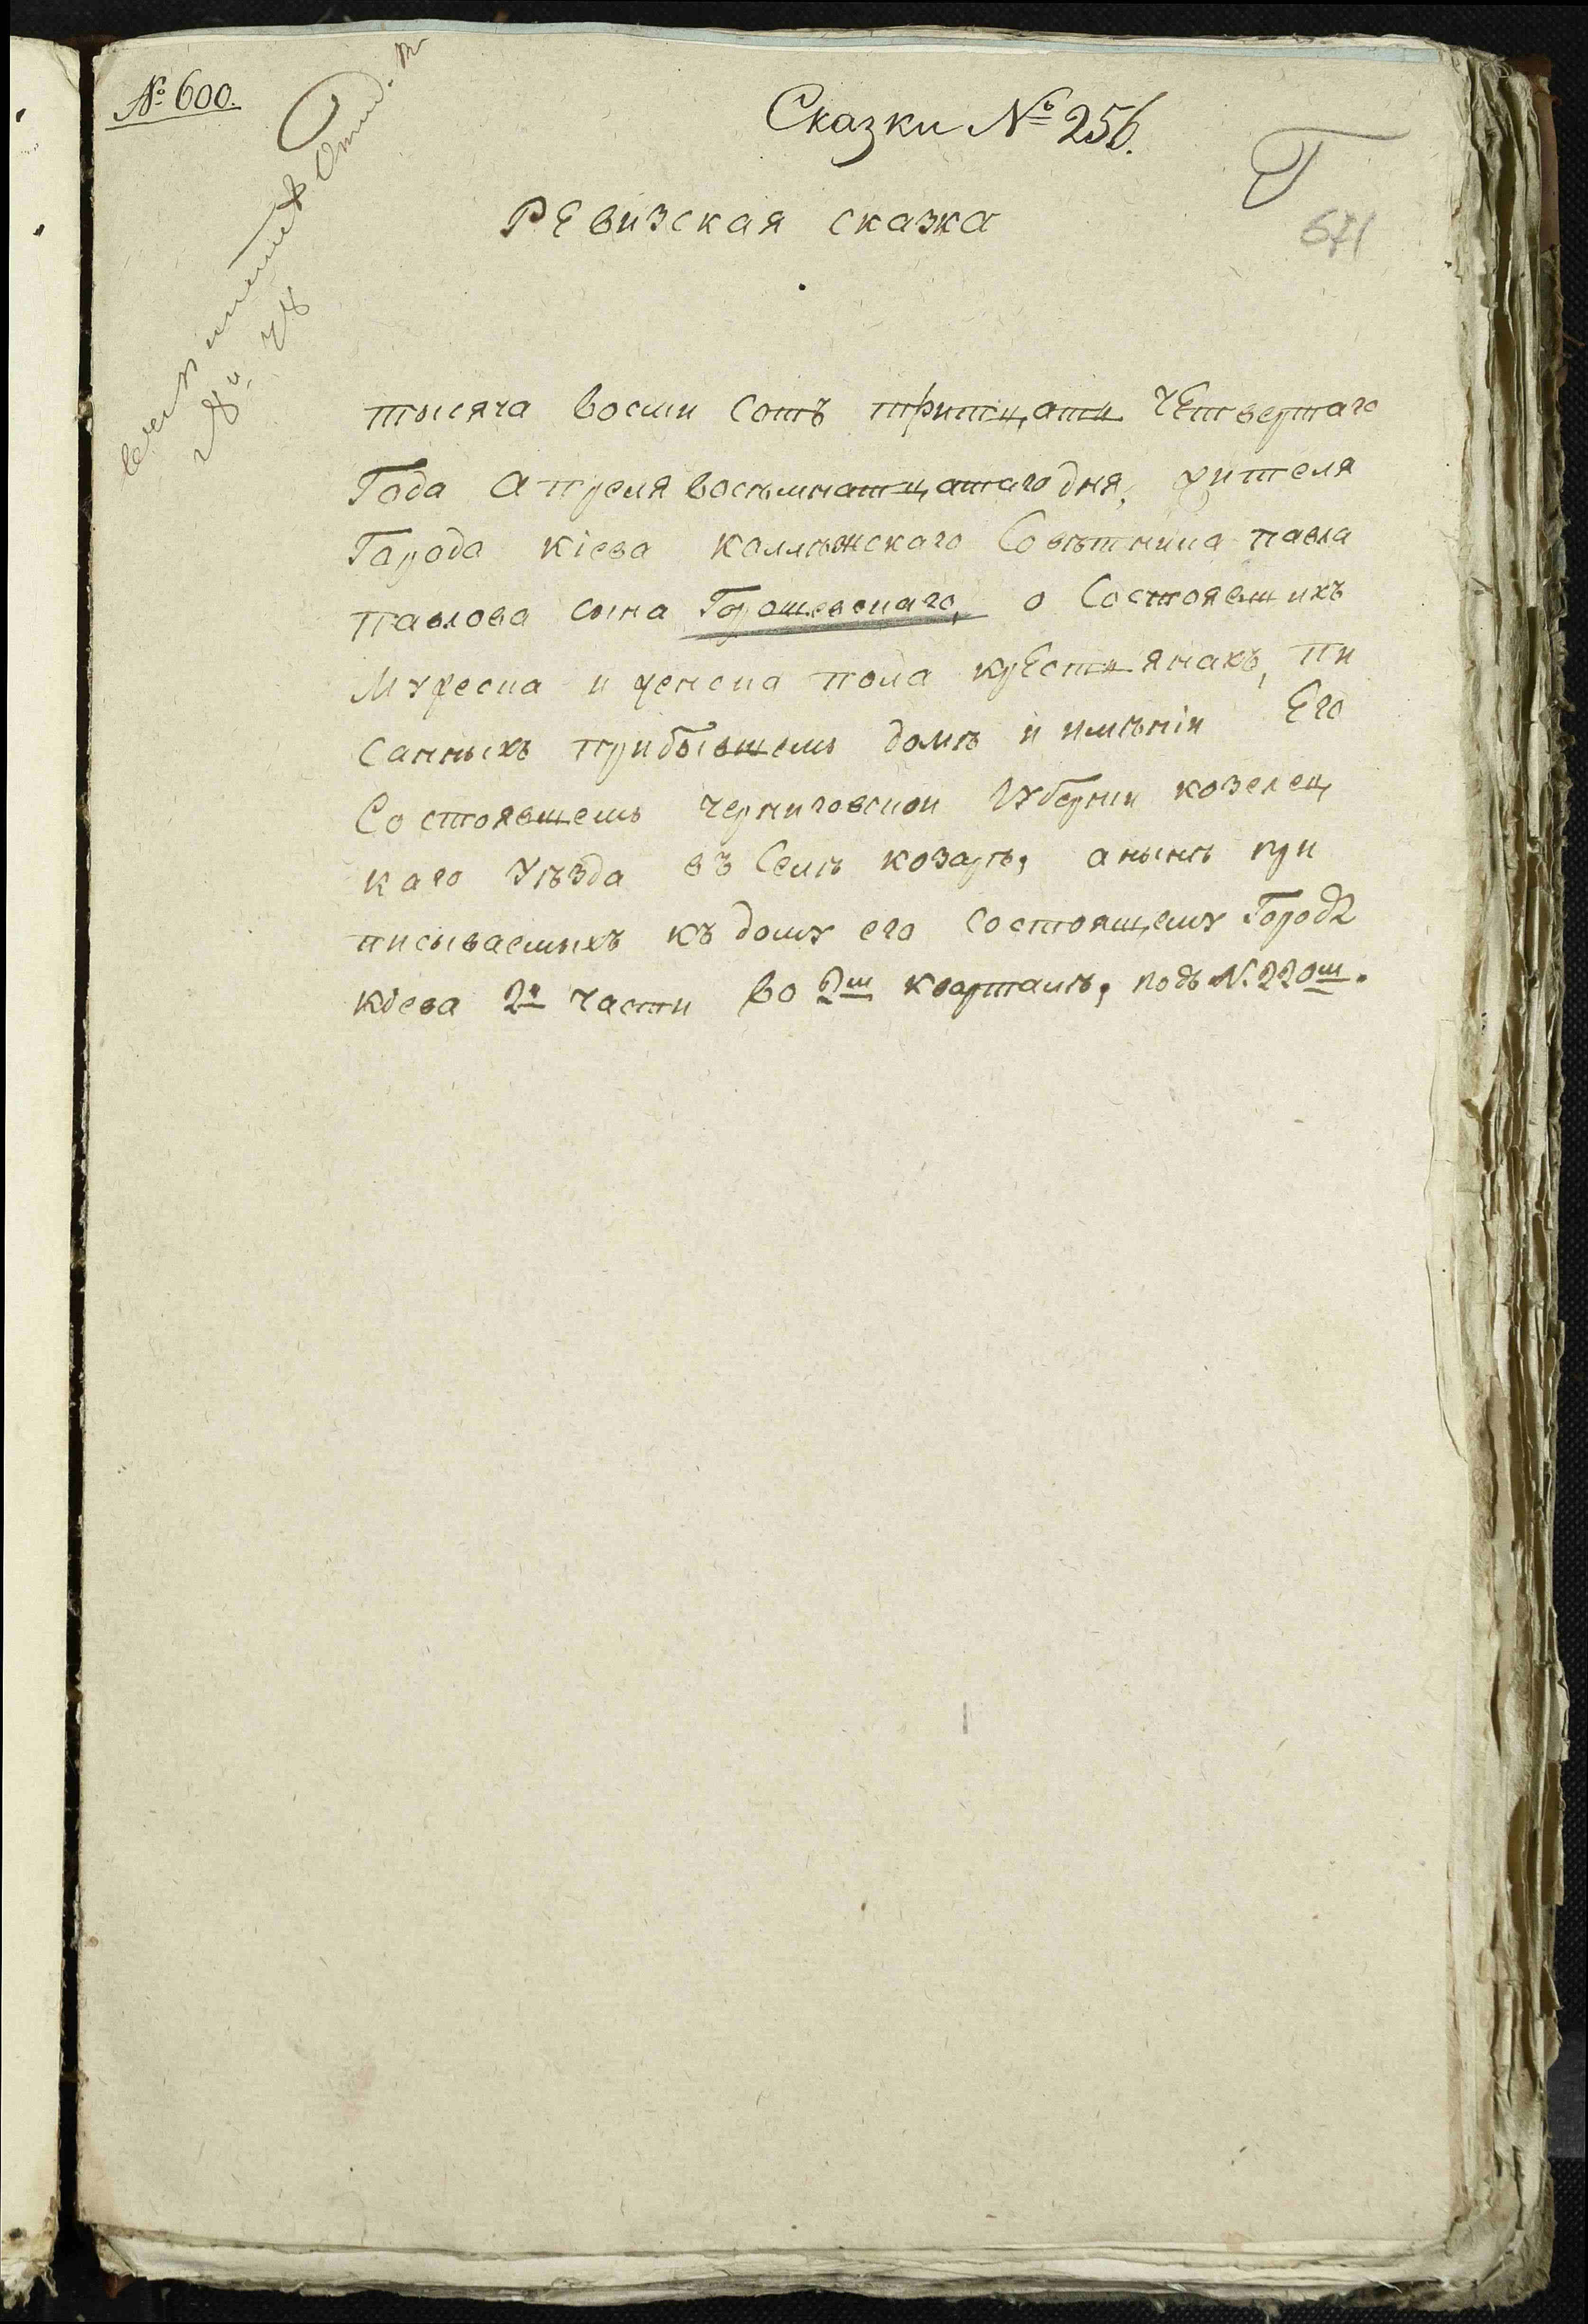 № 600.
Сказки № 256.
Г
671
Ревизская сказка
тысяча восми сотъ тритцати четвертаго
Года апреля восьмнатцатаго дня, жителя
Города Кіева коллѣжскаго Совѣтника павла
павлова сына Горошевскаго, о Состоявшихъ
Мужеска и женска пола крестиянахъ, пи
санныхъ прибывшемъ домѣ и имѣніи Его
Состоявшемъ черниговской Губернии козелец
каго уѣзда въ Селѣ козарѣ, а нынѣ при
писываемыхъ къ дому его состоящему Городѣ
Кіева 2й части во 2м кварталѣ, подъ №. 220м.